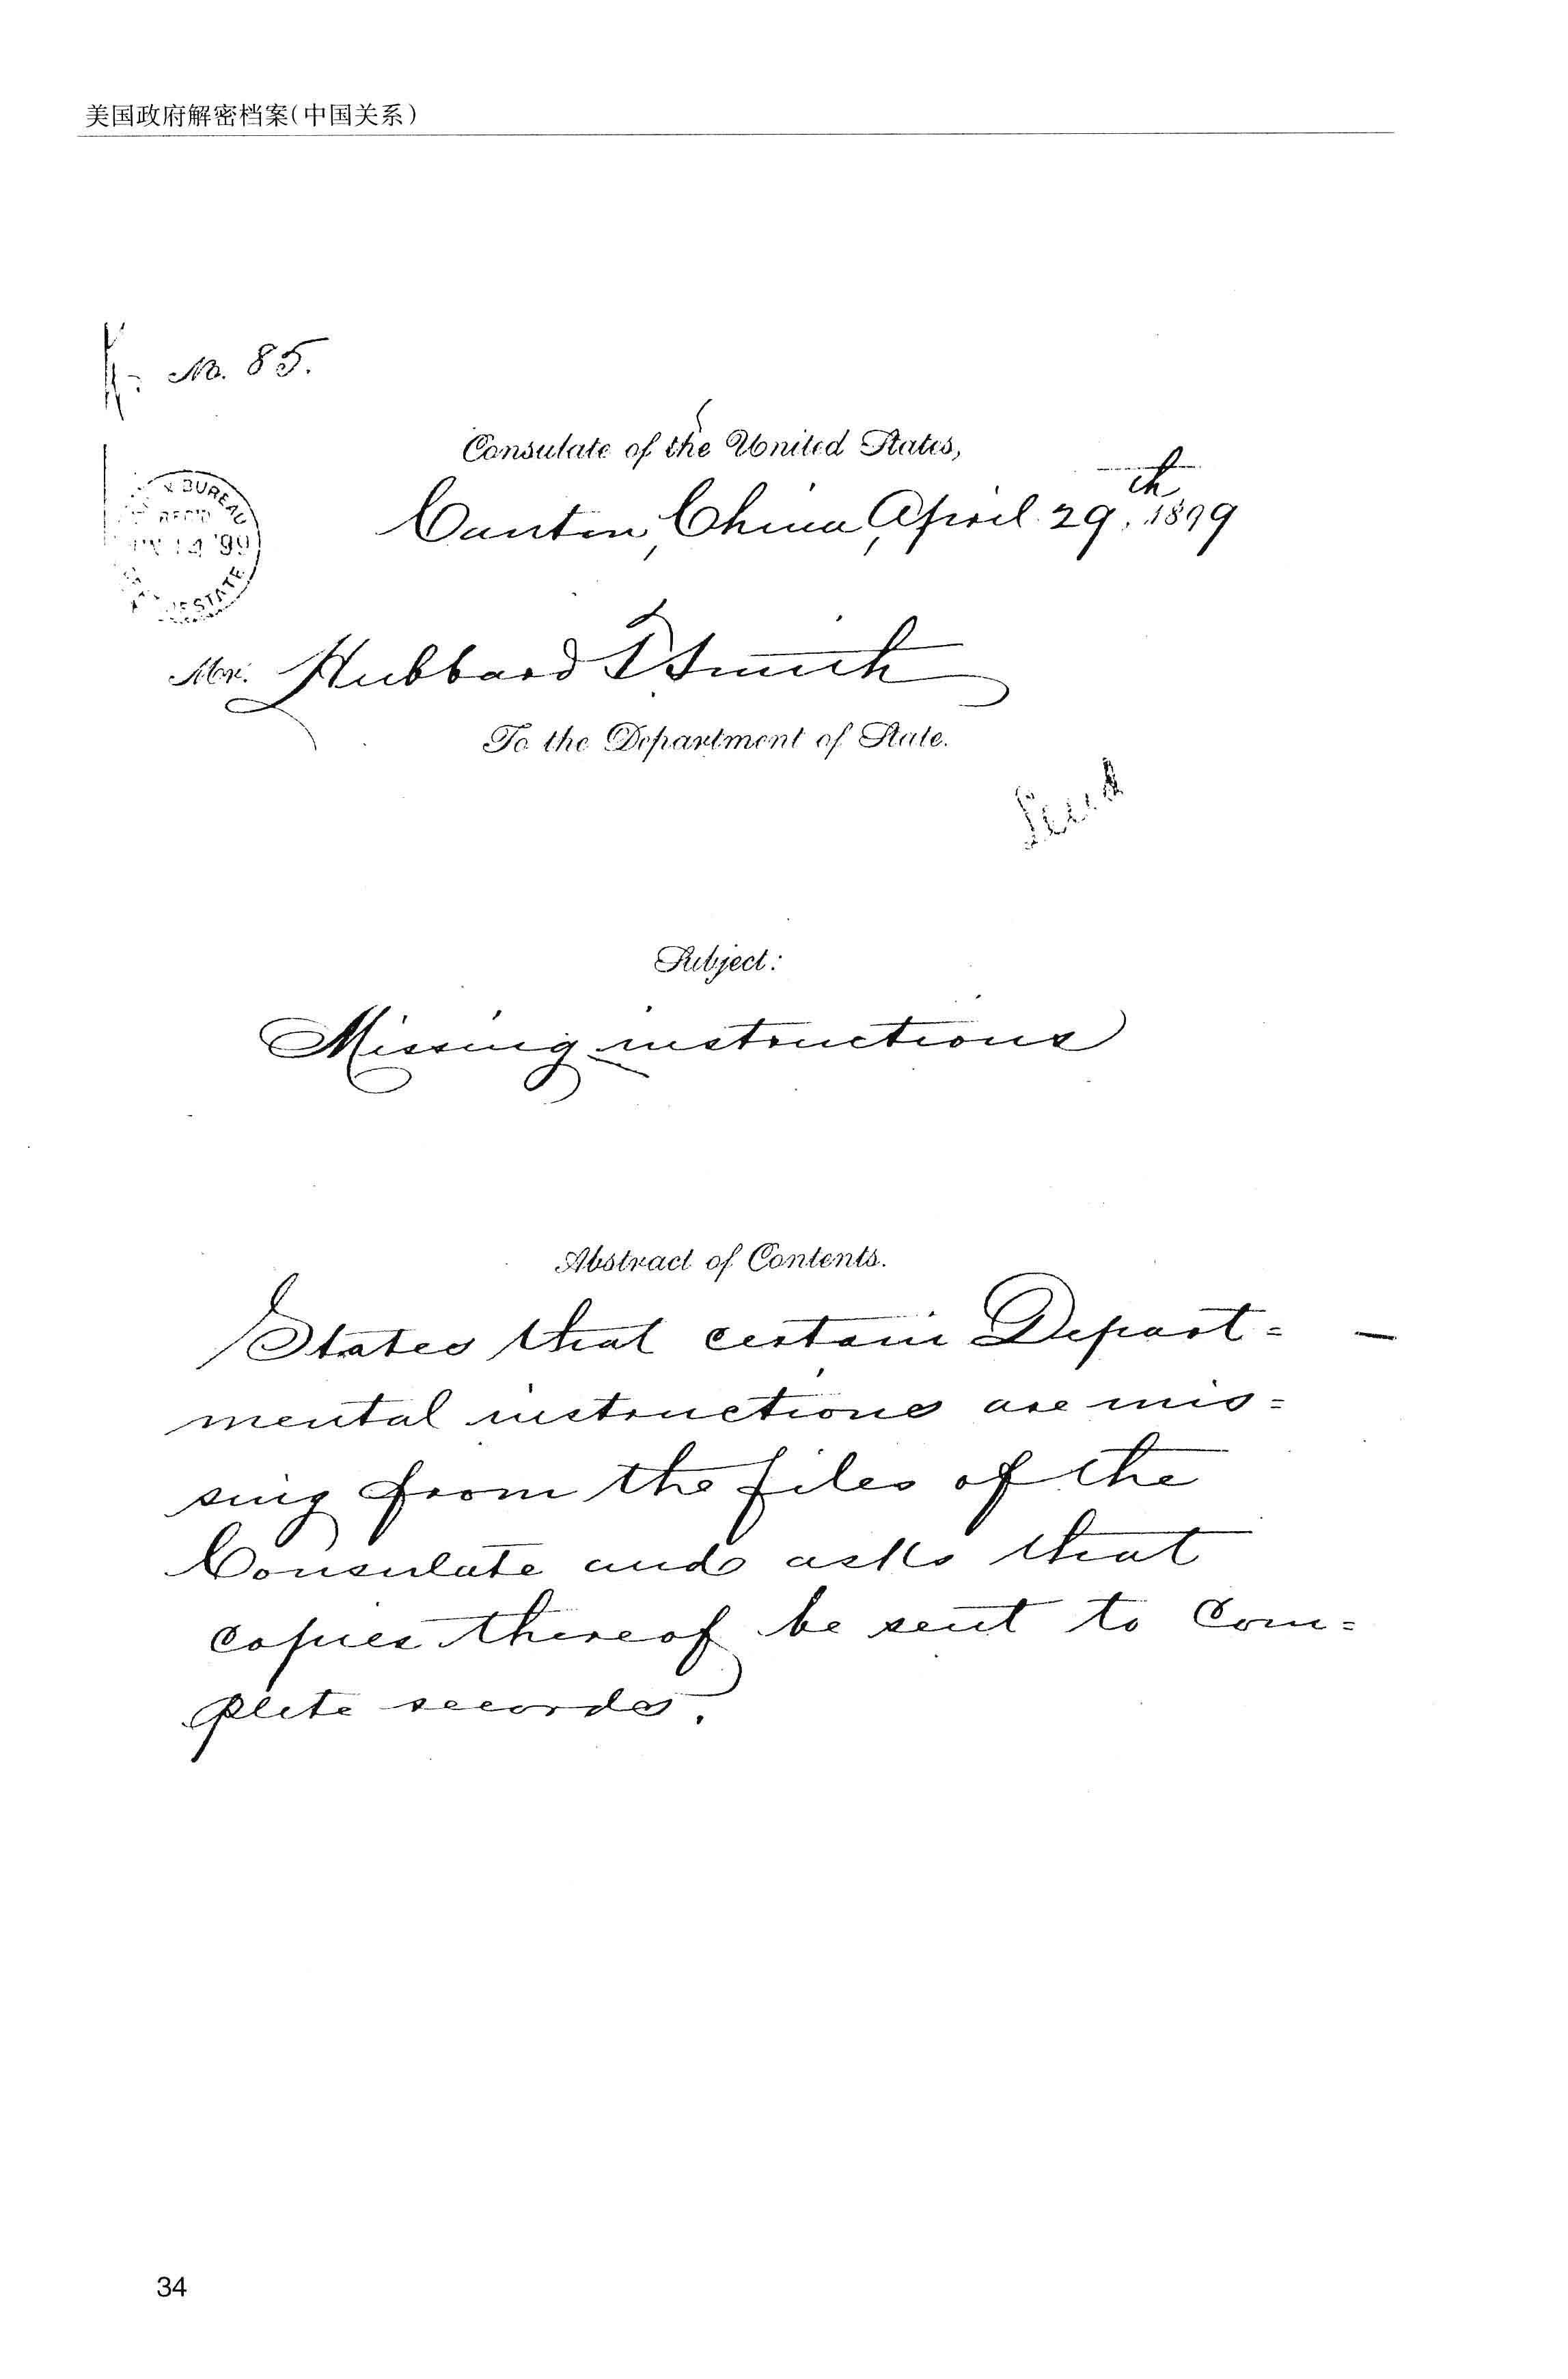 美国政府解密档案(中国关系)
No. 85.
Consulate of the United States,
Canton, China, April 29th, 1899
BUREAU
REC'D
14 '99
STATE
Mr. Hubbard T Smith
To the Department of State.
Send
Subject:
Missing instructions
Abstract of Contents.
States that certain Depart=
mental instructions are mis=
sing from the files of the
Consulate and asks that
copies thereof be sent to com=
plete records.
34